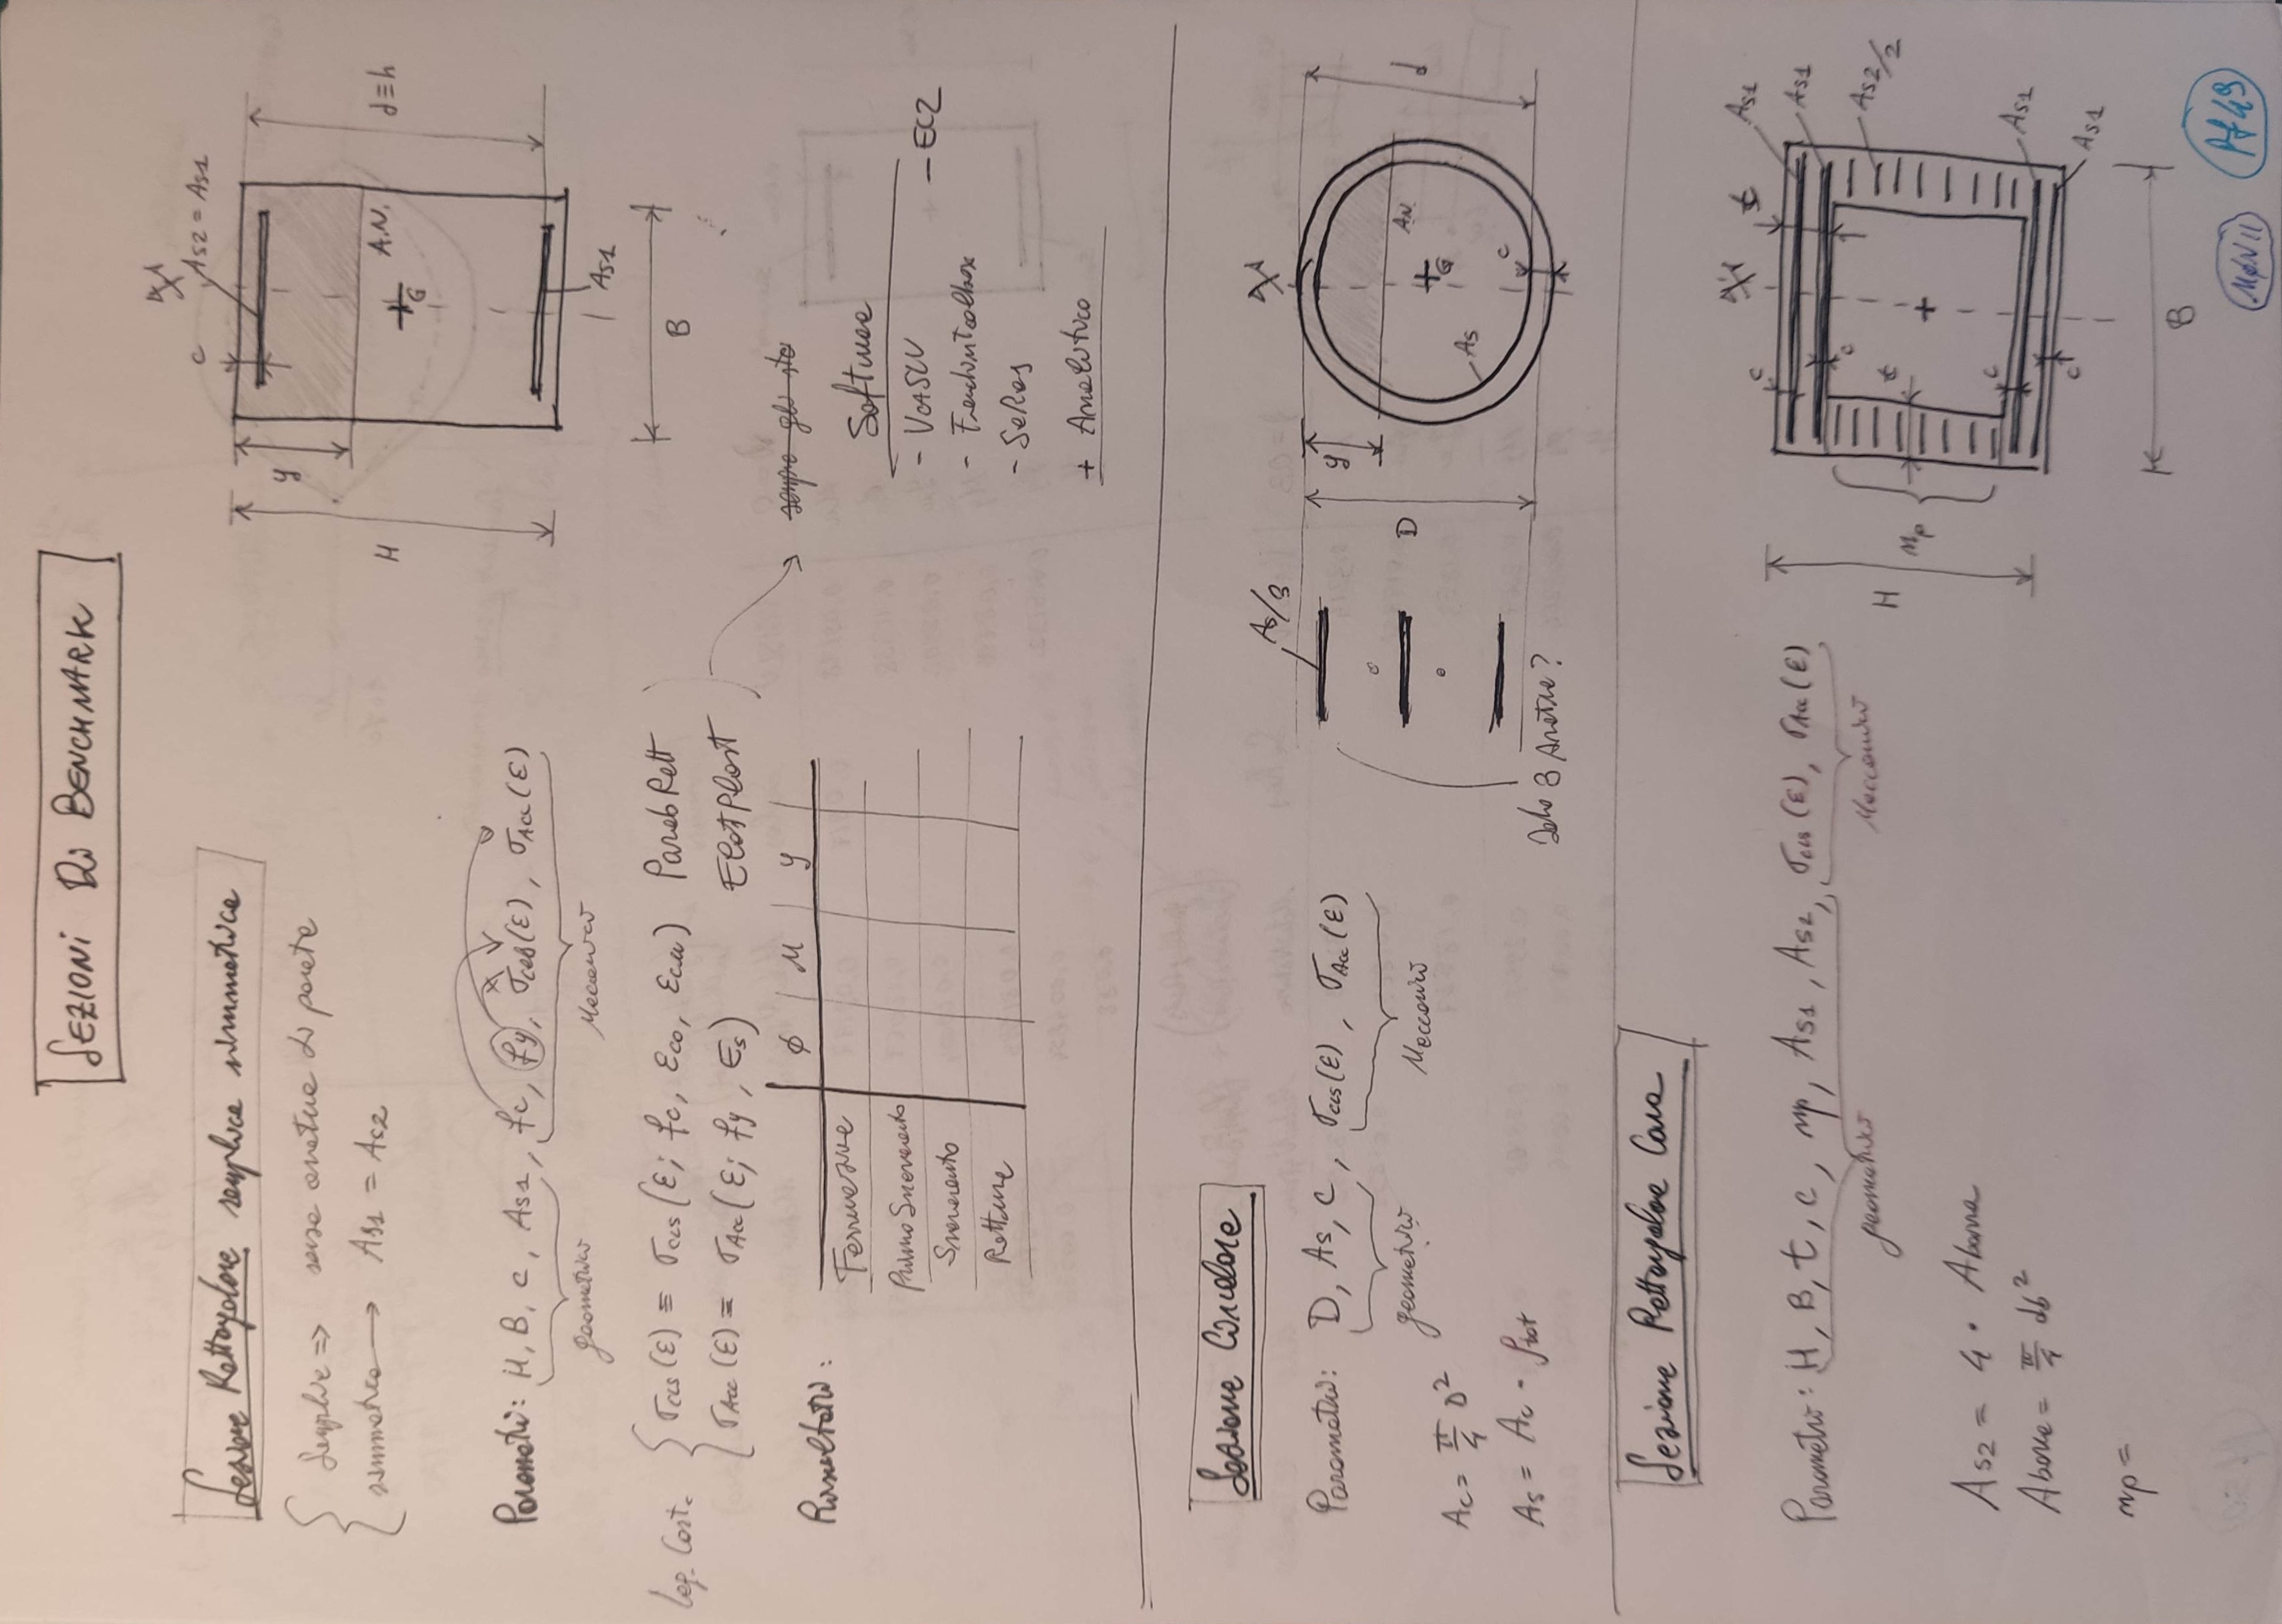 SEZIONI Di BENCHMARK
Sezione Rettangolare semplice simmetrica
Semplice => senza armature di parete
simmetrica → As1 = As2
Parametri: H, B, c, As1, fc, fy, σcls(ε), σAcc(ε)
geometrici
Meccanici
Leg. Cost.
σcls(ε) ≡ σcls(ε; fc, εco, εcu) ParabRett
σAcc(ε) ≡ σAcc(ε; fy, Es) ElastPlast
Risultati:
ϕ M y
Fessurazione
Primo Snervamento
Snervamento
Rottura
c
As2 = As1
y
H
A.N.
G
d≡h
As1
B
sempre gli
Software
- VCASLU
- EC2
- SeRes
+ Analitico
Sezione Circolare
Parametri: D, As, c, σcls(ε), σAcc(ε)
geometrici
Meccanici
Ac = π/4 D²
As = Ac · ρtot
As/3
Solo 3 Armature?
y
D
A.N.
G
As
c
d
Sezione Rettangolare Cava
Parametri: H, B, t, c, mp, As1, As2, σcls(ε), σAcc(ε)
geometrici
Meccanici
As2 = 4 · Abarra
Abarra = π/4 db²
mp =
c
t
As1
As1
c
As2/2
H
mp
t
c
As1
c
As1
B
MϕN II
Pf 49